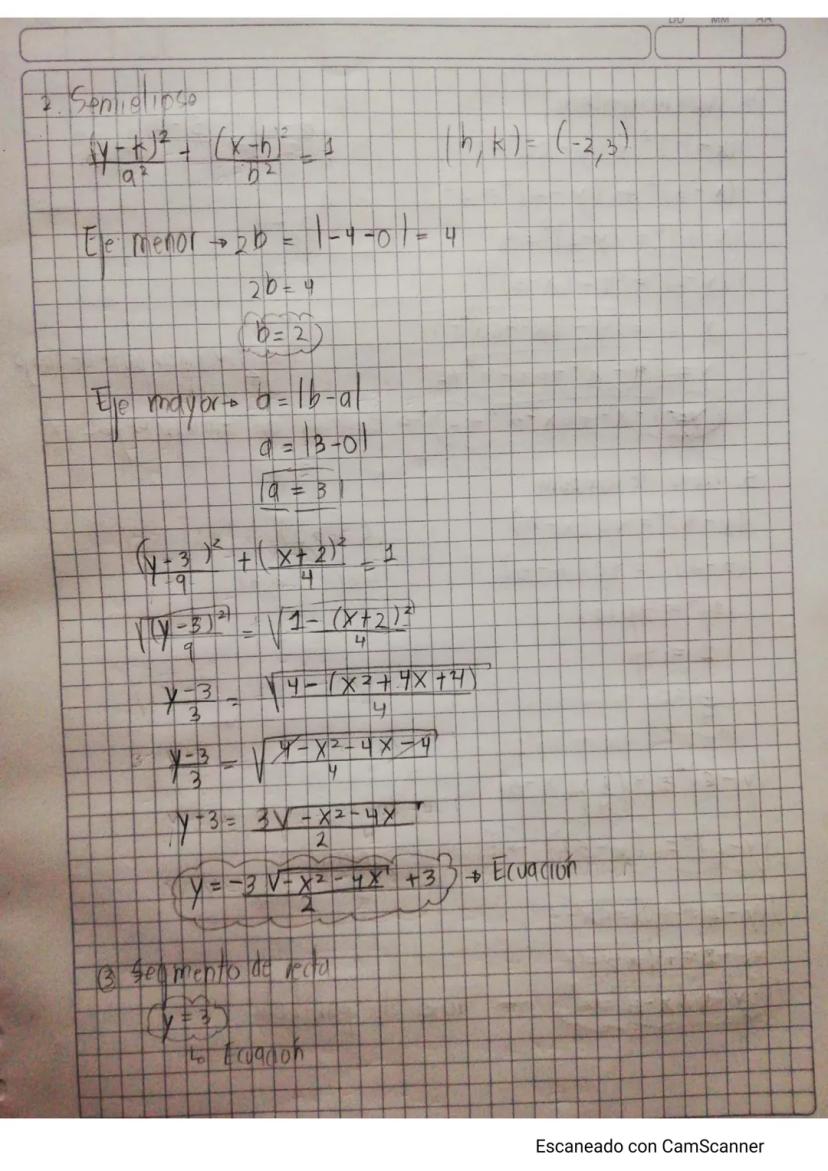 DD MM AA
2. Semielipse
(y-k)²/a² + (x-h)²/b² = 1 (h, k) = (-2,3)
Eje menor → 2b = |-4-0| = 4
2b = 4
b = 2
Eje mayor → a = |b-a|
a = |3-0|
a = 3
(y-3)²/9 + (x+2)²/4 = 1
√((y-3)²/9) = √(1-(x+2)²/4)
y-3/3 = √(4-(x²+4x+4)/4)
y-3/3 = √(4-x²-4x-4/4)
y-3 = 3√-x²-4x/2
y = -3√-x²-4x/2 +3 → Ecuación
③ Segmento de recta
y = 3
↳ Ecuación
Escaneado con CamScanner